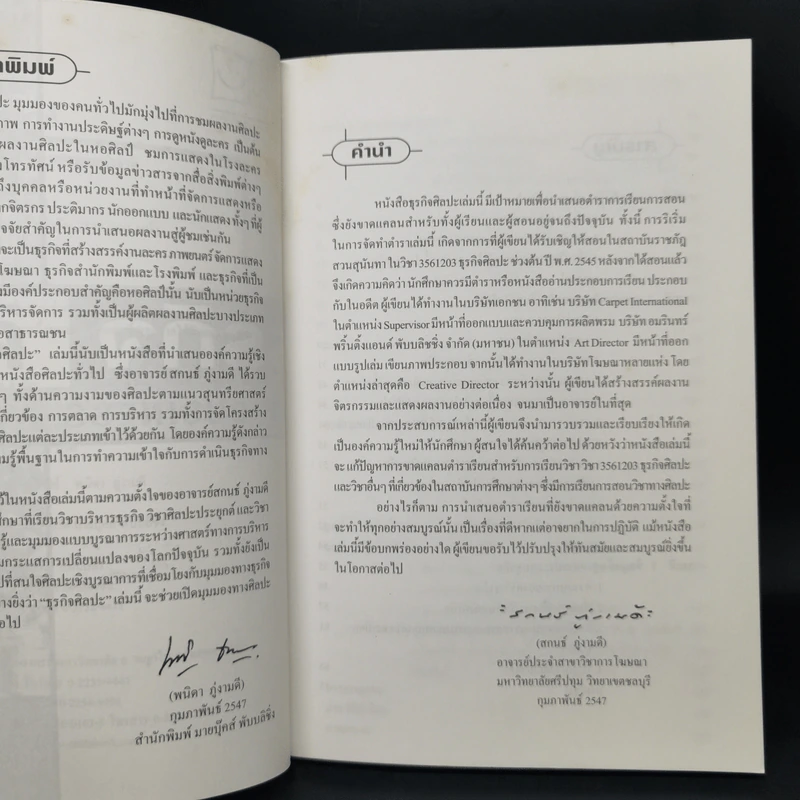 พิมพ์
ปะ มุมมองของคนทั่วไปมักมุ่งไปที่การชมผลงานศิลปะ
ภาพ การทำงานประดิษฐ์ต่างๆ การดูหนังดูละคร เป็นต้น
ผลงานศิลปะในหอศิลป์ ชมการแสดงในโรงละคร
งโทรทัศน์ หรือรับข้อมูลข่าวสารจากสื่อสิ่งพิมพ์ต่างๆ
ถึงบุคคลหรือหน่วยงานที่ทำหน้าที่จัดการแสดงหรือ
กจิตรกร ประติมากร นักออกแบบ และนักแสดงทั้งๆ ที่ผู้
จจัยสำคัญในการนำเสนอผลงานสู่ผู้ชมเช่นกัน
จะเป็นธุรกิจที่สร้างสรรค์งานละคร ภาพยนตร์ จัดการแสดง
โฆษณา ธุรกิจสำนักพิมพ์และโรงพิมพ์ และธุรกิจที่เป็น
งมีองค์ประกอบสำคัญคือหอศิลป์นั้น นับเป็นหน่วยธุรกิจ
ริหารจัดการ รวมทั้งเป็นผู้ผลิตผลงานศิลปะบางประเภท
อสาธารณชน
กิลปะ" เล่มนี้นับเป็นหนังสือที่นำเสนอองค์ความรู้เชิง
หนังสือศิลปะทั่วไป ซึ่งอาจารย์ สกนธ์ ภู่งามดี ได้ราบ
ๆ ทั้งด้านความงามของศิลปะตามแนวสุนทรียศาสตร์
กี่ยวข้อง การตลาด การบริหาร รวมทั้งการจัดโครงสร้าง
ศิลปะแต่ละประเภทเข้าไว้ด้วยกัน โดยองค์ความรู้ดังกล่าว
มรู้พื้นฐานในการทำความเข้าใจกับการดำเนินธุรกิจทาง
ว้ในหนังสือเล่มนี้ตามความตั้งใจของอาจารย์สกนธ์ ภู่งามดี
ศึกษาที่เรียนวิชาบริหารธุรกิจ วิชาศิลปะประยุกต์ และวิชา
รู้และมุมมองแบบบูรณาการระหว่างศาสตร์ทางการบริหาร
บกระแสการเปลี่ยนแปลงของโลกปัจจุบัน รวมทั้งยังเป็น
ปที่สนใจศิลปะเชิงบูรณาการที่เชื่อมโยงกับมุมมองทางธุรกิจ
างยิ่งว่า "ธุรกิจศิลปะ" เล่มนี้ จะช่วยเปิดมุมมองทางศิลปะ
อไป
(พนิดา ภู่งามดี)
กุมภาพันธ์ 2547
สำนักพิมพ์ มายบุ๊คส์ พับบลิชชิ่ง
คำนำ
หนังสือธุรกิจศิลปะเล่มนี้ มีเป้าหมายเพื่อนำเสนอตำราการเรียนการสอน
ซึ่งยังขาดแคลนสำหรับทั้งผู้เรียนและผู้สอนอยู่จนถึงปัจจุบัน ทั้งนี้ การริเริ่ม
ในการจัดทำตำราเล่มนี้ เกิดจากการที่ผู้เขียนได้รับเชิญให้สอนในสถาบันราชภัฏ
สวนสุนันทา ในวิชา 3561203 ธุรกิจศิลปะ ช่วงต้น ปี พ.ศ. 2545 หลังจากได้สอนแล้ว
จึงเกิดความคิดว่า นักศึกษาควรมีตำราหรือหนังสืออ่านประกอบการเรียน ประกอบ
กับในอดีต ผู้เขียนได้ทำงานในบริษัทเอกชน อาทิเช่น บริษัท Carpet International
ในตำแหน่ง Supervisor มีหน้าที่ออกแบบและควบคุมการผลิตพรม บริษัท อมรินทร์
พริ้นติ้งแอนด์ พับบลิชชิ่ง จำกัด (มหาชน) ในตำแหน่ง Art Director มีหน้าที่ออก
แบบรูปเล่ม เขียนภาพประกอบ จากนั้นได้ทำงานในบริษัทโฆษณาหลายแห่ง โดย
ตำแหน่งล่าสุดคือ Creative Director ระหว่างนั้น ผู้เขียนได้สร้างสรรค์ผลงาน
จิตรกรรมและแสดงผลงานอย่างต่อเนื่อง จนมาเป็นอาจารย์ในที่สุด
จากประสบการณ์เหล่านี้ผู้เขียนจึงนำมารวบรวมและเรียบเรียงให้เกิด
เป็นองค์ความรู้ใหม่ให้นักศึกษา ผู้สนใจ ได้ค้นคว้าต่อไป ด้วยหวังว่าหนังสือเล่มนี้
จะ แก้ปัญหาการขาดแคลนตำราเรียนสำหรับการเรียนวิชา วิชา 3561203 ธุรกิจศิลปะ
และวิชาอื่นๆ ที่เกี่ยวข้องในสถาบันการศึกษาต่างๆ ซึ่งมีการเรียนการสอนวิชาทางศิลปะ
อย่างไรก็ตาม การนำเสนอตำราเรียนที่ยังขาดแคลนด้วยความตั้งใจที่
จะทำให้ทุกอย่างสมบูรณ์นั้น เป็นเรื่องที่ดีหากแต่อาจยากในการปฏิบัติ แม้หนังสือ
เล่มนี้มีข้อบกพร่องอย่างใด ผู้เขียนขอรับไว้ปรับปรุงให้ทันสมัยและสมบูรณ์ยิ่งขึ้น
ในโอกาสต่อไป
(สกนธ์ ภู่งามดี)
อาจารย์ประจำสาขาวิชาการโฆษณา
มหาวิทยาลัยศรีปทุม วิทยาเขตชลบุรี
กุมภาพันธ์ 2547